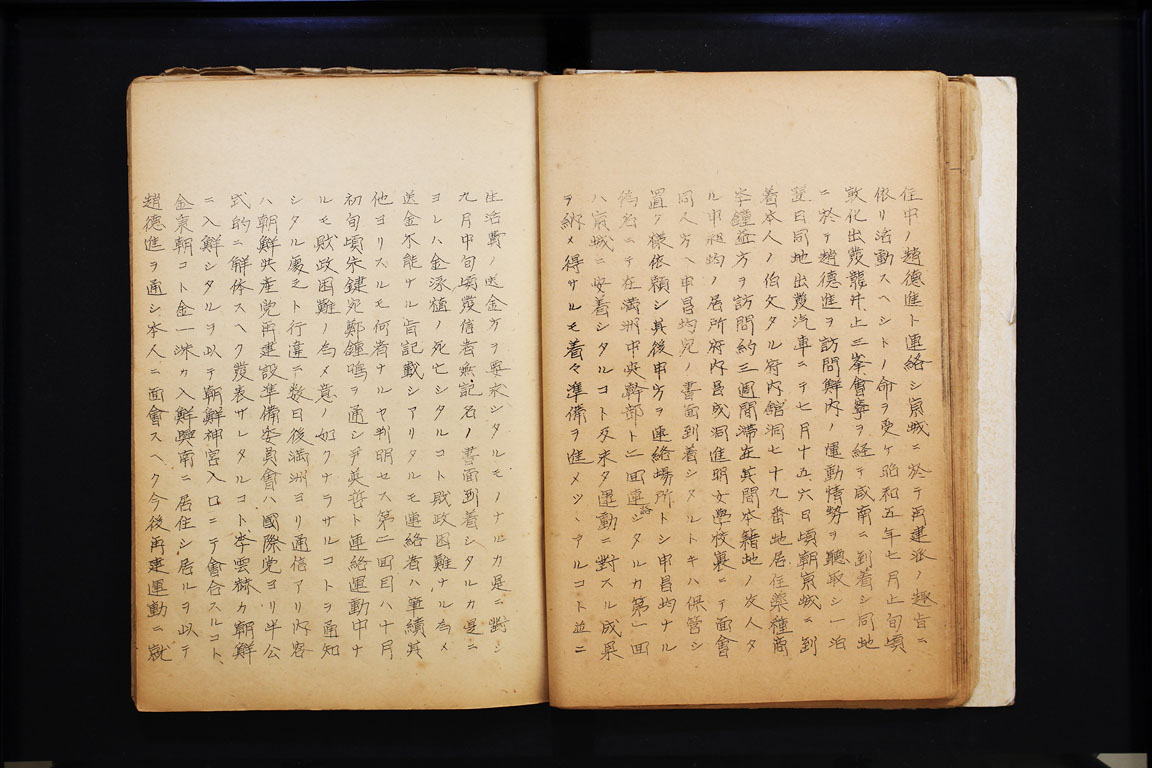 住中ノ趙德進ト連絡シ京城ニ於テ再建派ノ趣旨ニ
依リ活動スヘシトノ命ヲ受ケ昭和五年七月上旬頃
敦化出發龍井、上三峯會寧ヲ経テ咸南ニ到着シ同地
ニ於テ趙德進ヲ訪問鮮内ノ運動情勢ヲ聽取シ一泊
翌日同地出發汽車ニテ七月十五、六日頃朝京城ニ到
着本人ノ伯父タル府内舘洞七十九番地居住藥種商
李鐘益方ヲ訪問約三週間滞在其間本籍地ノ友人タ
ル申昌均ノ居所府内昌成洞進明女學校裏ニテ面會
同人方ヘ申昌均宛ノ書面到着シタルトキハ保管シ
置ク様依頼シ其後申方ヲ連絡場所トシ申昌均ナル
偽名ニテ在滿洲中央幹部ト二回連絡シタルカ第一回
ハ京城ニ安着シタルコト及未タ運動ニ對スル成果
ヲ納メ得サルモ着々準備ヲ進メツヽアルコト並ニ
生活費ノ送金方ヲ要求シタルモノナルカ是ニ對シ
九月中旬頃發信者無記名ノ書面到着シタルカ是ニ
ヨレハ金泳植ノ死亡シタルコト財政困難ナル為メ
送金不能ナル旨記載シアリタルモ連絡者ハ筆蹟其
他ヨリスルモ何者ナルヤ判明セス第二回目ハ十月
初旬頃宋鍵宛鄭鍾鳴ヲ通シ尹英哲ト連絡運動中ナ
ルモ財政困難ノ為メ意ノ如クナラサルコトヲ通知
シタル處之ト行違ニ数日後満洲ヨリ通信アリ内容
ハ朝鮮共産党再建設準備委員會ハ國際党ヨリ半公
式的ニ解体スヘク發表サレタルコト李雲赫カ朝鮮
ニ入鮮シタルヲ以テ朝鮮神宮入口ニテ會合スルコト、
金衷朝コト金一洙カ入鮮興南ニ居住シ居ルヲ以テ
趙德進ヲ通シ本人ニ面會スヘク今後再建運動ニ就